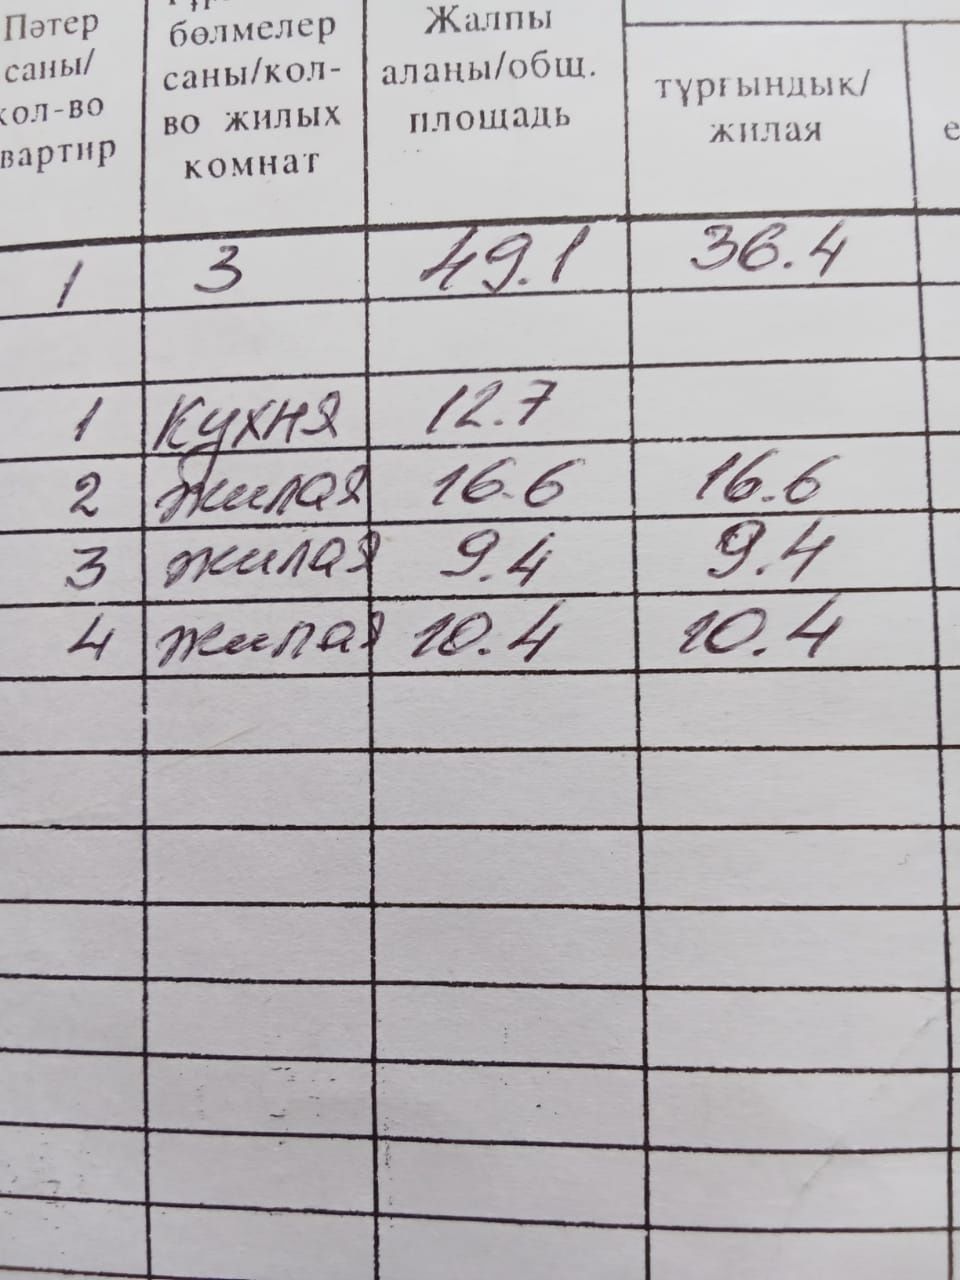 Пәтер
саны/
кол-во
квартир
бөлмелер
саны/кол-
во жилых
комнат
Жалпы
алаңы/общ.
площадь
тұрғындық/
жилая
е
1 3 49.1 36.4
1 кухня 12.7
2 жилая 16.6 16.6
3 жилая 9.4 9.4
4 жилая 10.4 10.4